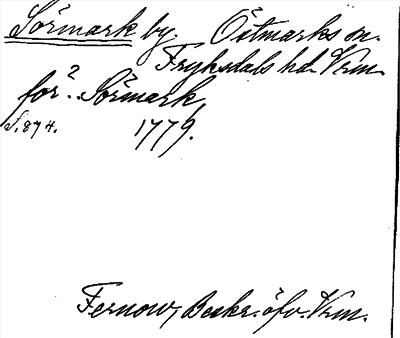 Sörmark by, Östmarks sn.
Fryksdals hd. Vrm.
för? Sörmark,
S. 874. 1779.
Fernow, Beskr. öfv. Vrm.